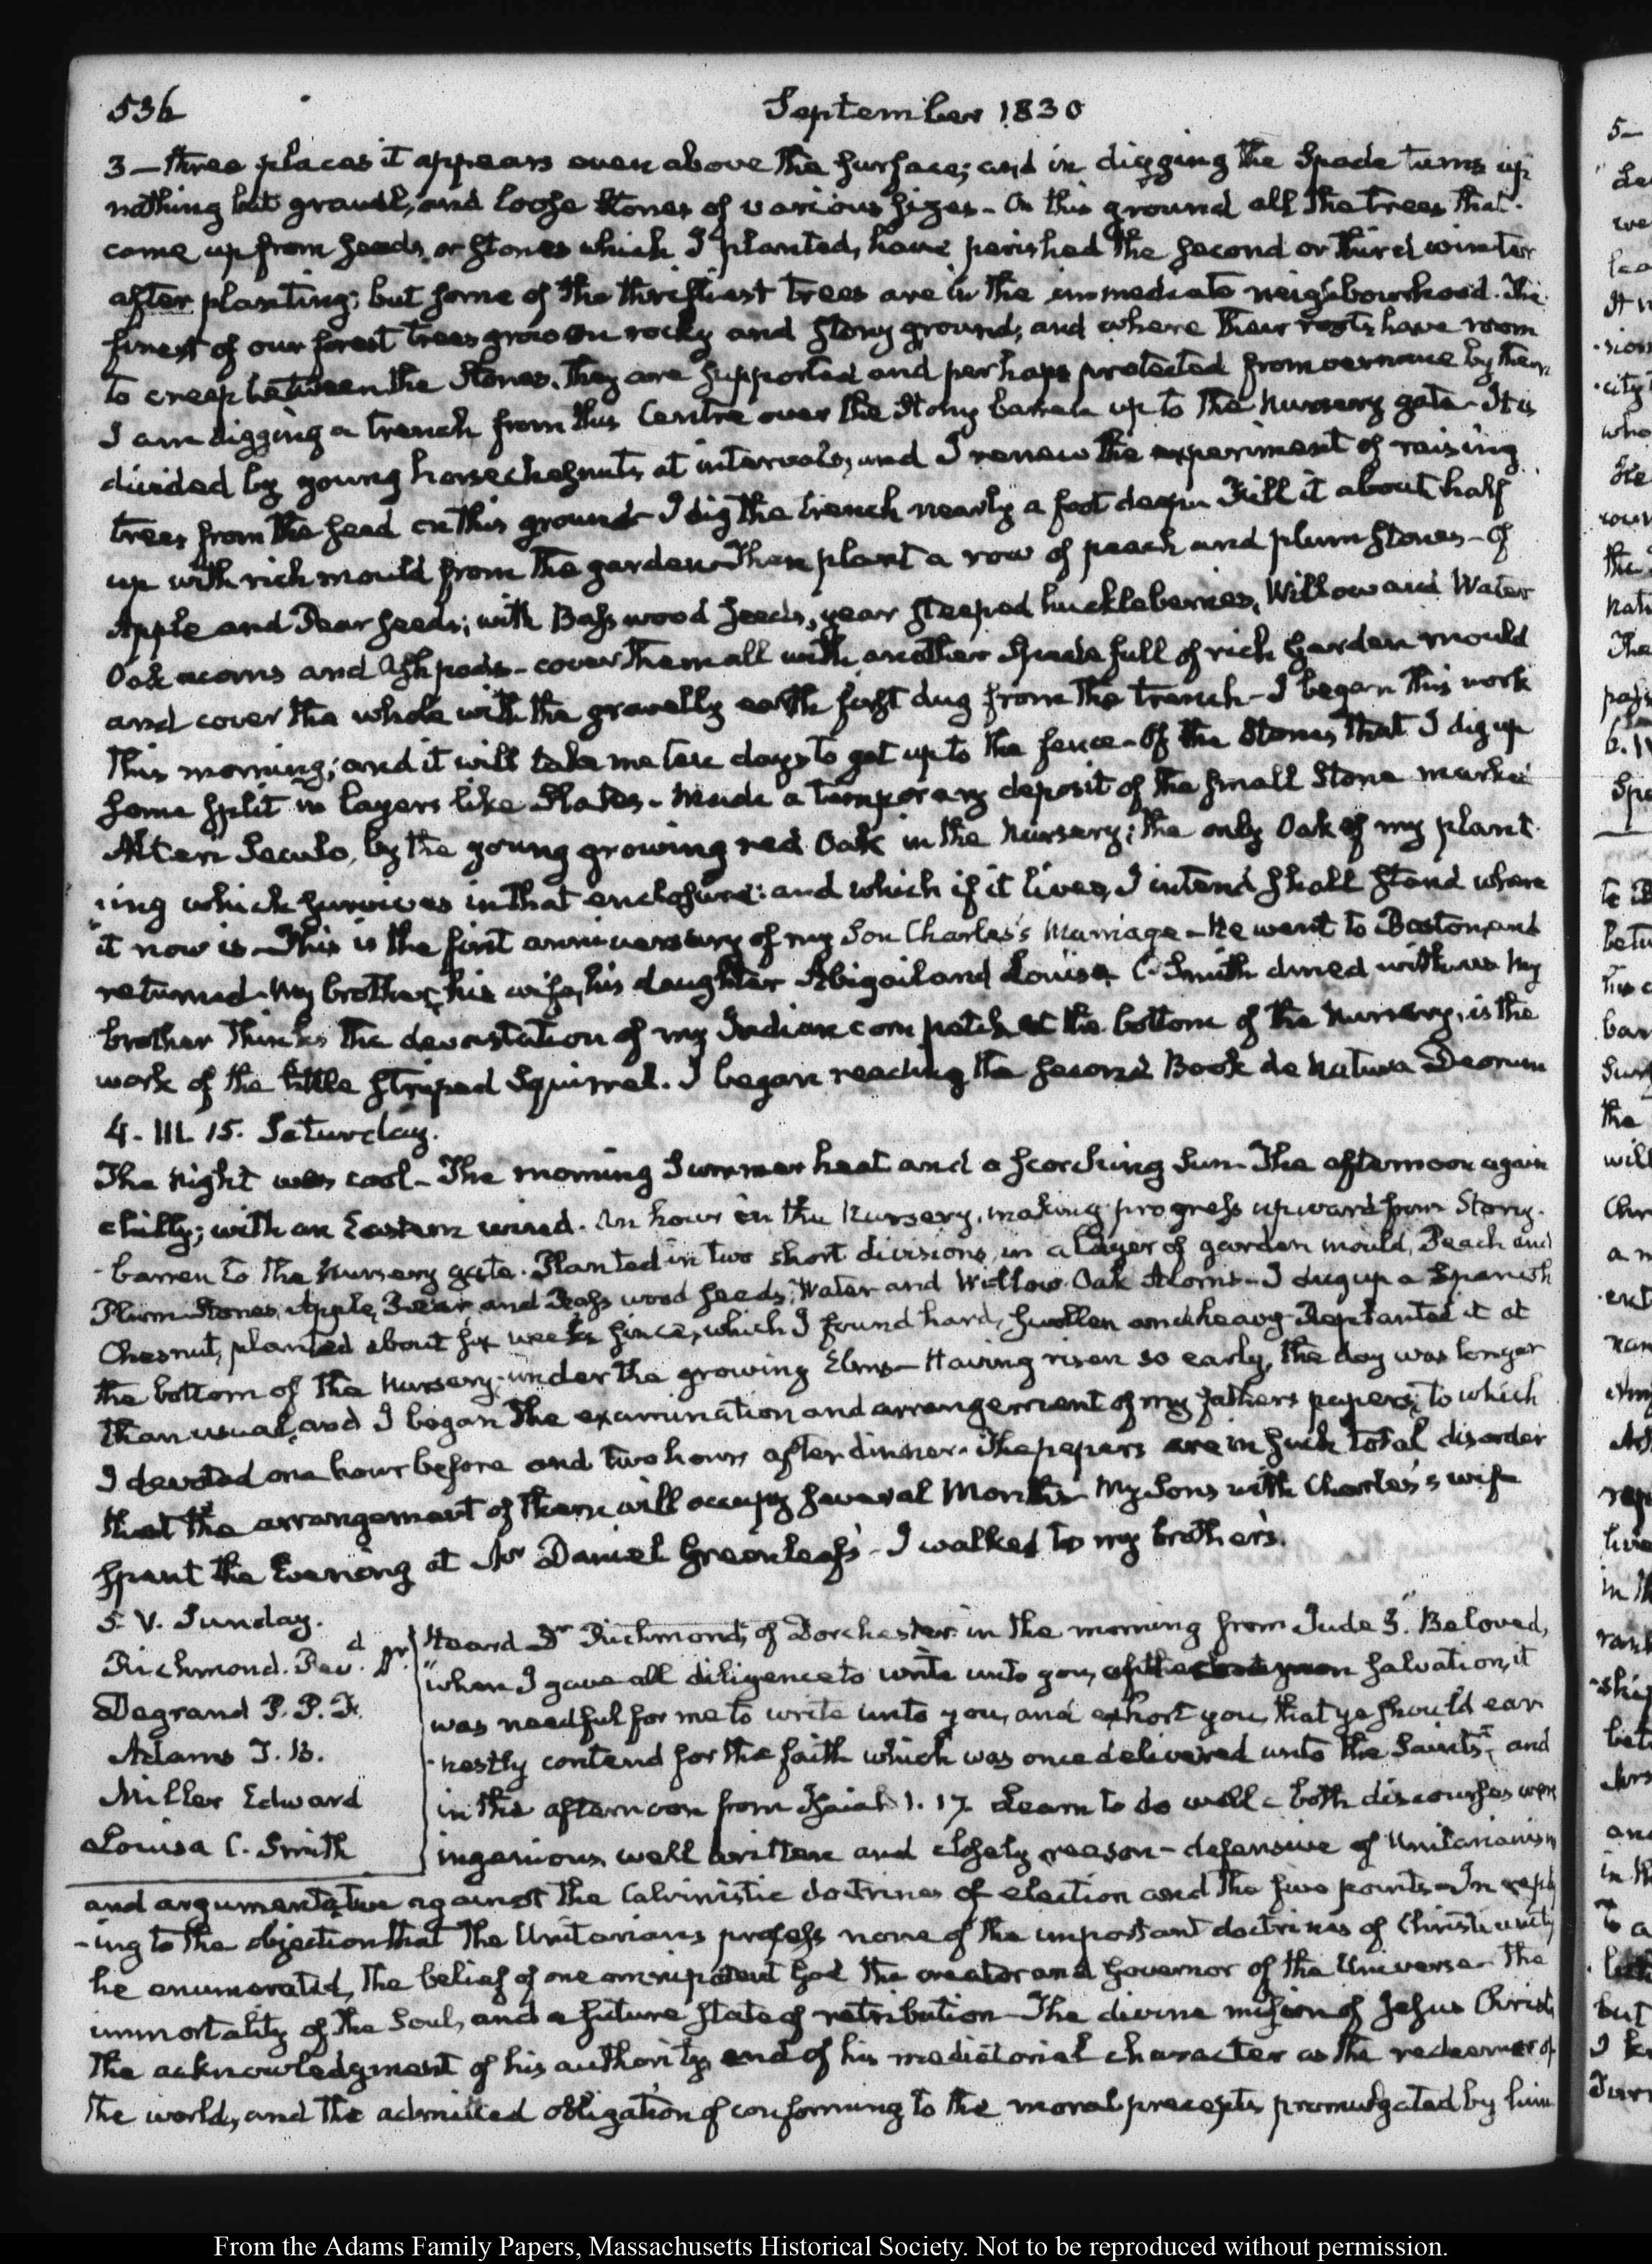 536
September 1830
3 — three places it appears even above the surface; and in digging the Spade turns up
nothing but gravel, and loose stones of various sizes - On this ground all the trees that
come up from seeds or stones which I planted, have perished the second or third winter
after planting; but some of the thriftiest trees are in the immediate neighbourhood. The
finest of our forest trees grow on rocky and stony ground; and where their roots have room
to creep between the Stones. They are supported and perhaps protected from by them
I am digging a trench from this Centre over the Stony barren up to the Nursery gate - It is
divided by young horsechesnuts at intervals; and I renew the experiment of raising
trees from the seed on this ground - I dig the trench nearly a foot deep fill it about half
up with rich mould from the garden - Then plant a row of peach and plum stones - of
Apple and Pear seeds; with Bass wood seeds, year steeped huckleberries, Willow and Water
Oak acorns and Ash pods - cover them all with another Spade full of rich Garden mould
and cover the whole with the gravelly earth first dug from the trench - I began this work
this morning; and it will take me ten days to get up to the fence - Of the Stones that I dig up
some split in layers like Slates - Made a temporary deposit of the small Stone marked
Alteri Seculo, by the young growing red Oak in the Nursery; the only Oak of my plant-
-ing which survives in that enclosure: and which if it lives, I intend shall stand where
it now is - This is the first anniversary of my Son Charles's Marriage - He went to Boston, and
returned - My brother, his wife, his daughter Abigail and Louisa C. Smith dined with us. My
brother thinks the devastation of my Indian corn patch at the bottom of the Nursery, is the
work of the little striped Squirrel. I began reading the second Book de Natura Deorum
4. III. 15. Saturday.
The Night was cool - The morning Summer heat and a scorching Sun - The afternoon again
chilly; with an Eastern wind. An hour in the Nursery, making progress upward from Stony-
-barren to the Nursery gate. Planted in two short divisions, in a layer of garden mould, Peach and
Plum Stones, Apple, Pear, and Bass wood seeds; Water and Willow Oak Acorns - I dug up a Spanish
Chesnut, planted about six weeks since, which I found hard, swollen and heavy - Replanted it at
the bottom of the Nursery; under the growing Elms - Having risen so early, the day was longer
than usual, and I began the examination and arrangement of my father's papers; to which
I devoted one hour before and two hours after dinner. The papers are in such total disorder
that the arrangement of them will occupy several Months - My Sons with Charles's wife
spent the Evening at Mr Daniel Greenleaf's - I walked to my brother's.
5. V. Sunday.
Richmond. Revd. Dr.
Degrand P. P. F.
Adams T. B.
Miller Edward
Louisa C. Smith
Heard Dr Richmond, of Dorchester in the morning from Jude 3. "Beloved,
"when I gave all diligence to write unto you, of the common salvation, it
was needful for me to write unto you, and exhort you, that ye should ear-
-nestly contend for the faith which was once delivered unto the Saints", and
in the afternoon from Isaiah 1. 17. Learn to do well - both discourses were
ingenious, well written and closely reason - defensive of Unitarianism
and argumentative against the Calvinistic doctrines of election and the five points - In reply
-ing to the objection that the Unitarians profess none of the important doctrines of Christianity
he enumerated, The belief of one omnipotent God the creator and Governor of the Universe - The
immortality of the Soul, and a future state of retribution - The divine mission of Jesus Christ,
The acknowledgment of his authority, and of his mediatorial character as the redeemer of
the world, and the admitted obligation of conforming to the moral precepts promulgated by him
From the Adams Family Papers, Massachusetts Historical Society. Not to be reproduced without permission.